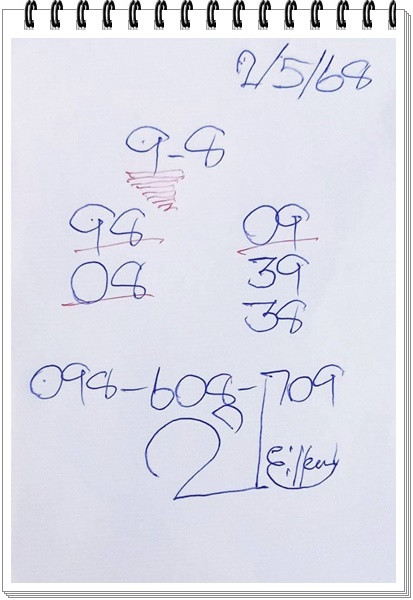 2/5/68
9-8
98 09
08 39
38
098-608-709
2